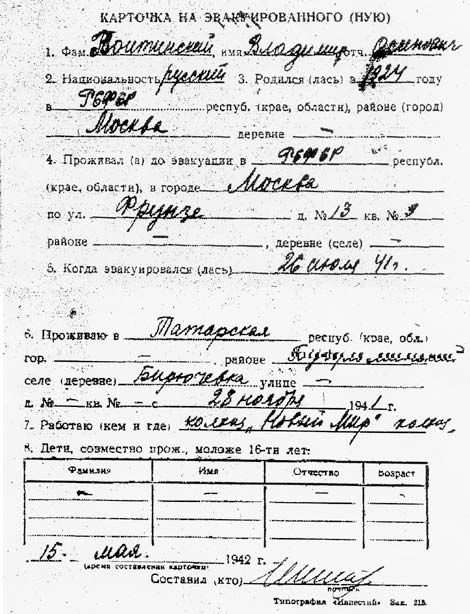 КАРТОЧКА НА ЭВАКУИРОВАННОГО (НУЮ)
1. Фам. Войтинский, имя Владимир отч. Осипович
2. Национальность русский 3. Родился (лась) в 1924 году
в РСФСР респуб. (крае, области), районе (город)
Москва деревне —
4. Проживал (а) до эвакуации в РСФСР республ.
(крае, области), в городе Москва
по ул. Фрунзе д. № 13 кв. № 9
районе — , деревне (селе) —
5. Когда эвакуировался (лась) 26 июля 41г.
6. Проживаю в Татарская респуб. (крае, обл.)
гор. — районе
селе (деревне) Бирючевка улице —
д. № — кв. № — с 28 ноября 1941 г.
7. Работаю (кем и где) колхоз „Новый Мир"
8. Дети, совместно прож., моложе 16-ти лет:
Фамилия Имя Отчество Возраст
— — — —
15. мая. 1942 г.
(время составления карточки)
Составил (кто)
Типография «Известий» Зак. 215.